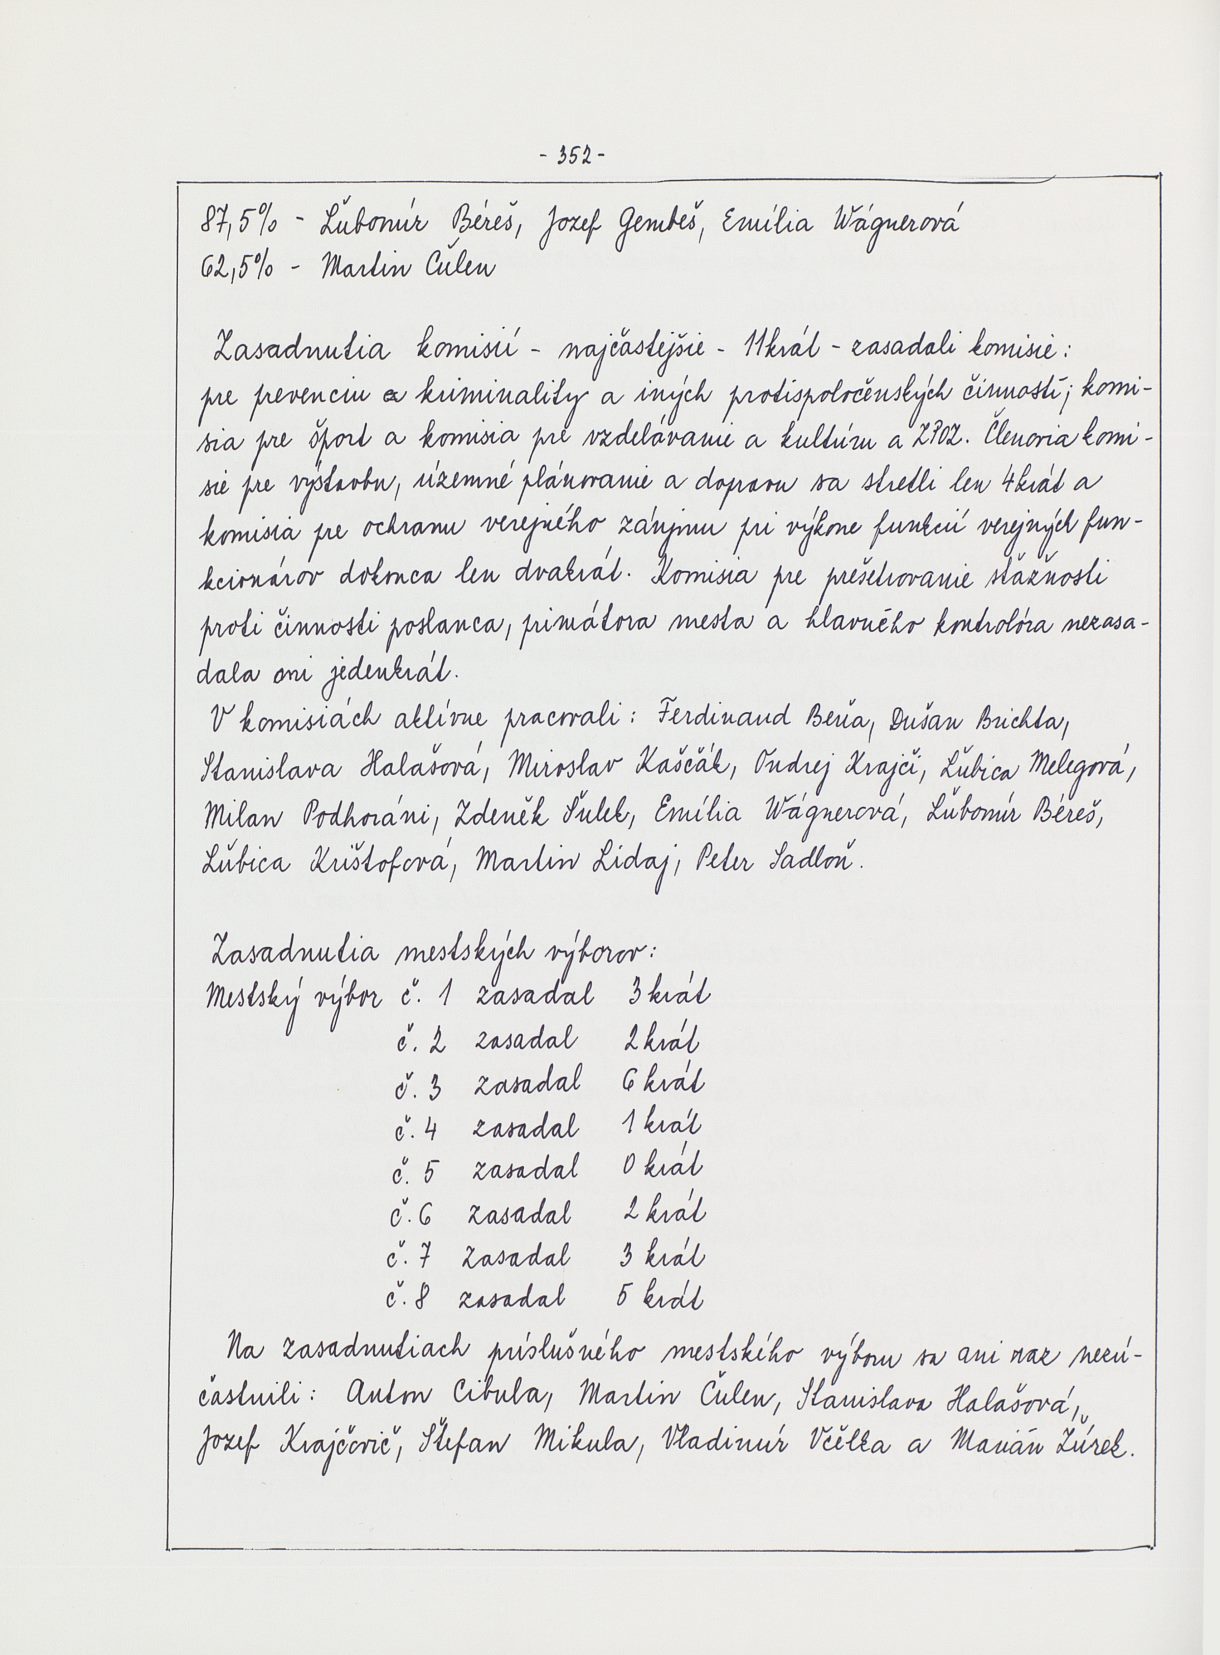 - 352 -
87,5% - Ľubomír Béreš, Jozef Gembeš, Emília Wágnerová
62,5% - Martin Čulen
Zasadnutia komisií - najčastejšie - 11krát - zasadali komisie:
pre prevenciu a kriminality a iných protispoločenských činností; komi-
sia pre šport a komisia pre vzdelávanie a kultúru a ZPOZ. Členovia komi-
sie pre výstavbu, územné plánovanie a dopravu sa stretli len 4krát a
komisia pre ochranu verejného záujmu pri výkone funkcií verejných fun-
kcionárov dokonca len dvakrát. Komisia pre prešetrovanie sťažnosti
proti činnosti poslanca, primátora mesta a hlavného kontrolóra nezasa-
dala ani jedenkrát.
V komisiách aktívne pracovali: Ferdinand Beňa, Dušan Brichta,
Stanislava Halašová, Miroslav Kaščák, Ondrej Krajči, Ľubica Melegová,
Milan Podhoráni, Zdeněk Šulek, Emília Wágnerová, Ľubomír Béreš,
Ľubica Krištofová, Martin Lidaj, Peter Sadloň.
Zasadnutia mestských výborov:
Mestský výbor č. 1 zasadal 3 krát
č. 2 zasadal 2 krát
č. 3 zasadal 6 krát
č. 4 zasadal 1 krát
č. 5 zasadal 0 krát
č. 6 zasadal 2 krát
č. 7 zasadal 3 krát
č. 8 zasadal 5 krát
Na zasadnutiach príslušného mestského výboru sa ani raz nezú-
častnili: Anton Cibula, Martin Čulen, Stanislava Halašová,
Jozef Krajčovič, Štefan Mikula, Vladimír Včelka a Marián Žúrek.